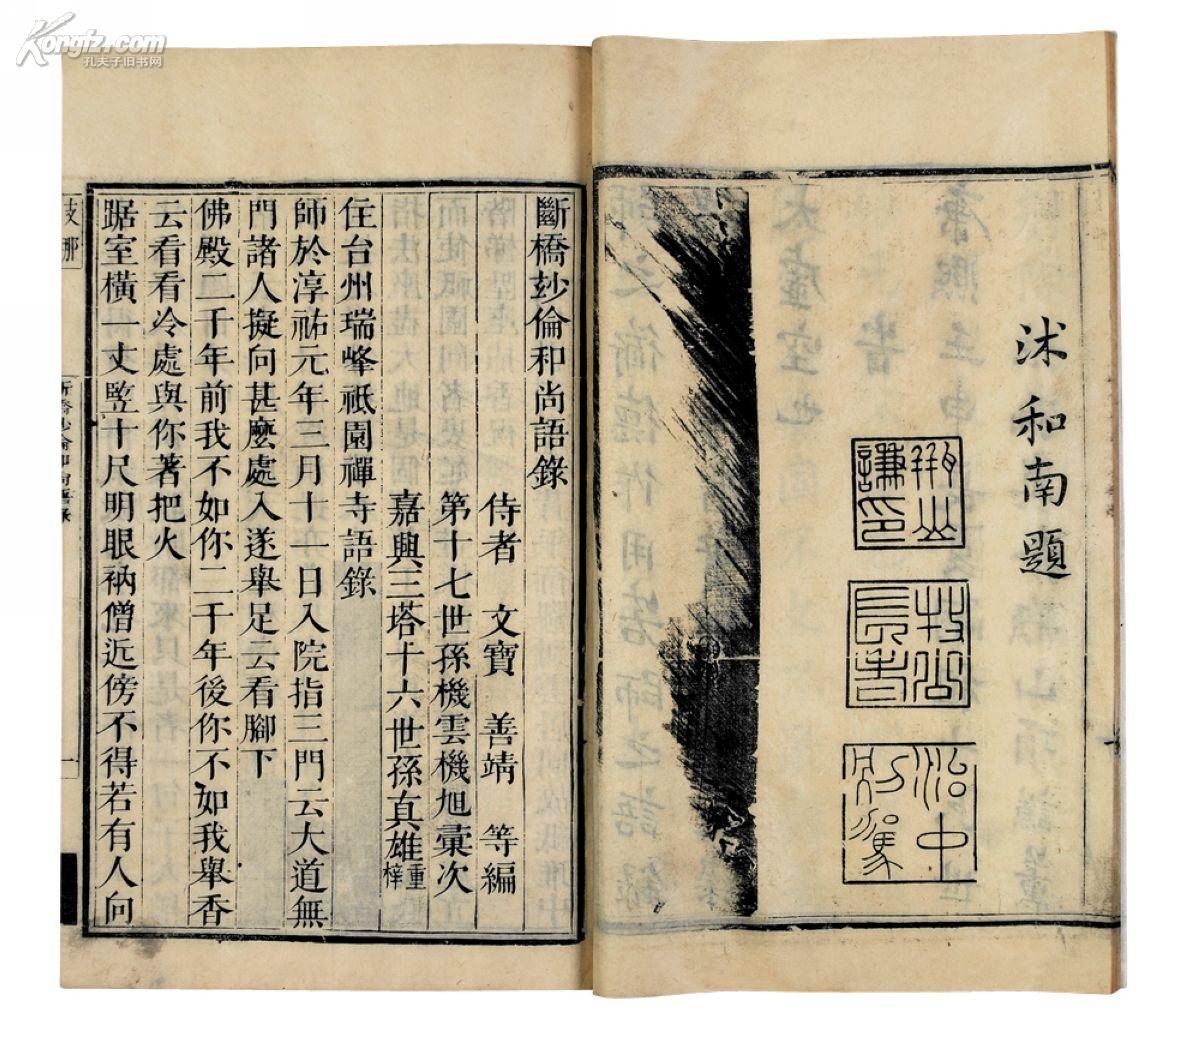 沭和南題
斷橋玅倫和尚語錄
侍者 文寶 善靖 等編
第十七世孫機雲機旭彙次
嘉興三塔十六世孫真雄重梓
住台州瑞峰祇園禪寺語錄
師於淳祐元年三月十一日入院指三門云大道無
門諸人擬向甚麼處入遂舉足云看腳下
佛殿二千年前我不如你二千年後你不如我舉香
云看看冷處與你著把火
踞室橫一丈竪十尺明眼衲僧近傍不得若有人向
Kongfz.com
孔夫子旧书网